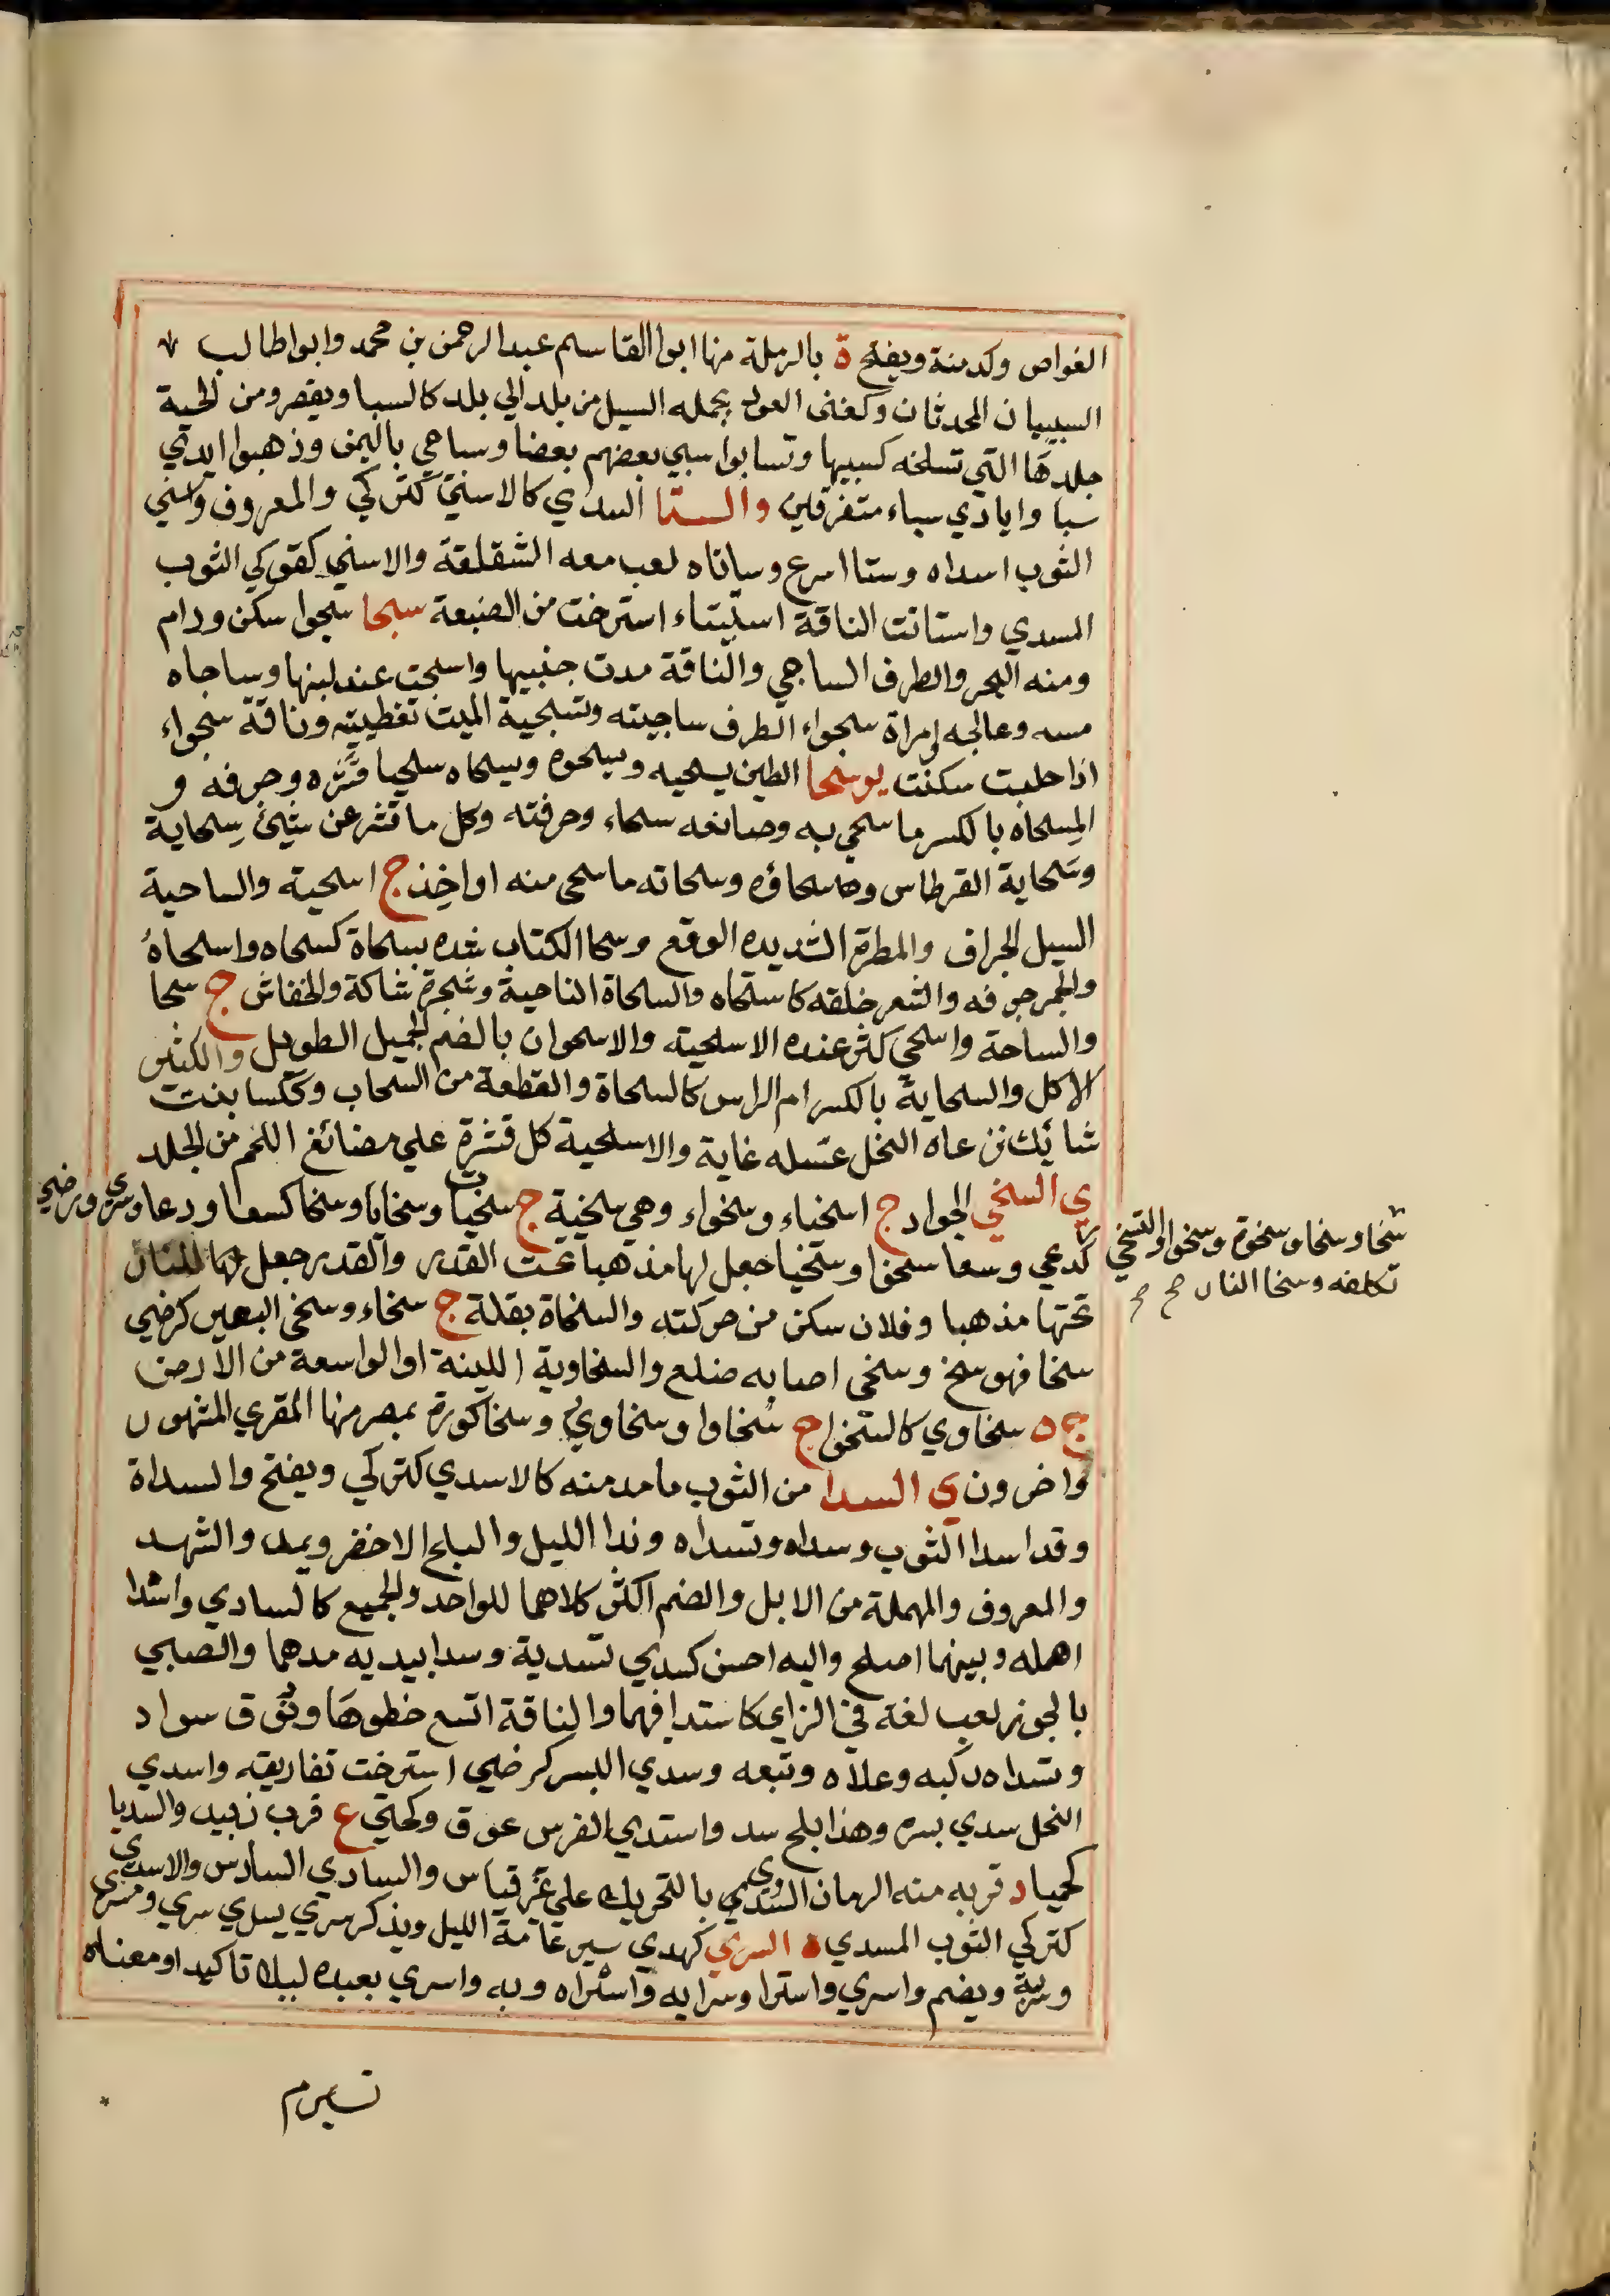 الغواص وكدمنة ويفتح ة بالرملة منها ابوا القاسم عبد الرحمن بن محمد وابوا طالب
السبييان المحدثان وكغنى العود يحمله السيل من بلد الي بلد كالسبا ويقصر ومن الحية
جلدها التي تسلخه كسبيها وتسابوا سبي بعضهم بعضا وسباحي باليمن وذهبوا ايدي
سبا وايادي سباء متفرقين والستا السدي كالاستي كتركي والمعروف واستي
الثوب اسداه وستا اسرع وساتاه لعب معه الشقلقة والاستي كقوكي الثوب
المسدي واستاتت الناقة استيتاء استرخت من الضبعة سجا سجوا سكن ودام
ومنه البحر والطرف الساجي والناقة مدت جنبيها واسجت عند لبنها وساجاه
مسه وعالجه وامراة سجواء الطرف ساجيته وتسجية الميت تغطيته وناقة سجواء
اذا حلبت سكنت يو سحا الطين يسحيه ويسحوه ويسحاه سحيا قشره وجرفه و
المسحاه بالكسر ما سحي به وصانعه سحاء وحرفته وكل ما قشر عن شيئ سحاية
وسحاية القرطاس وسحاؤه وسحاته ما سحى منه او اخذ ج اسحية والساحية
السيل الجراف والمطرة الشديده الوقع وسحا الكتاب شده بسحاة كسحاه واسحاه
والجمر جرفه والشعر حلقه كاستحاه والسحاة الناحية وشجرة شاكة والخفاش ج سحا
والساحة واسحي كثر عنده الاسحية والاسحوان بالضم الجميل الطويل والكثير
الاكل والسحاية بالكسر ام الراس كالسحاة والقطعة من السحاب وككسا بنت
شائك ترعاه النحل عسله غاية والاسحية كل قشرة علي مضائغ اللحم من الجلد
ي السخي الجواد ج اسخياء وسخواء وهي سخية ج سخيات وسخايا وسخا كسعا ودعا وسرى ورضي
كدعي وسعا سخوا وسخيا جعل لها مذهبا تحت القدر والقدر جعل لها للنار
تحتها مذهبا وفلان سكن من حركته والسخاة بقلة ج سخاء وسخى البعير كرضي
سخا فهو سخ وسخى اصابه ضلع والسخاوية اللينة او الواسعة من الارض
ج ه سخاوي كالسخوا ج سخاوا وسخاوي وسخا كورة بمصر منها المقري المشهور
واخرون ي السدا من الثوب ما مد منه كالاسدي كتركي ويفتح والسداة
وقد اسدا الثوب وسداه وتسداه وندا الليل والبلح الاخضر ويمد والشهد
والمعروف والمهملة من الابل والضم اكثر كلاهما للواحد والجميع كالسادي واسدا
اهمله وبينهما اصلح واليه احسن كسدي تسدية وسدا بيديه مدهما والصبي
بالجوز لعب لغة في الزاي كاستدا فيهما والناقة اتسع خطوها ونوق سواد
وتسداه ركبه وعلاه وتبعه وسدي البسر كرضي استرخت تفاريقه واسدي
النخل سدي بسره وهذا بلح سد واستدي الفرس عرق وكحتي ع قرب زبيد والسديا
كحميا د قربه منه الرمان السدوي بالتحريك علي غير قياس والسادي السادس والاسدي
كتركي الثوب المسدي السري كهدي سير عامة الليل ويذكر سري يسري سري ومسرى
وسرية ويضم واسري واسترا وسرا به واسراه وبه واسري بعبده ليلا تاكيد او معناه
سخا وسخا وسخوة وسخوا والتسخي
تكلفه وسخا النار صح صح
تسيرم